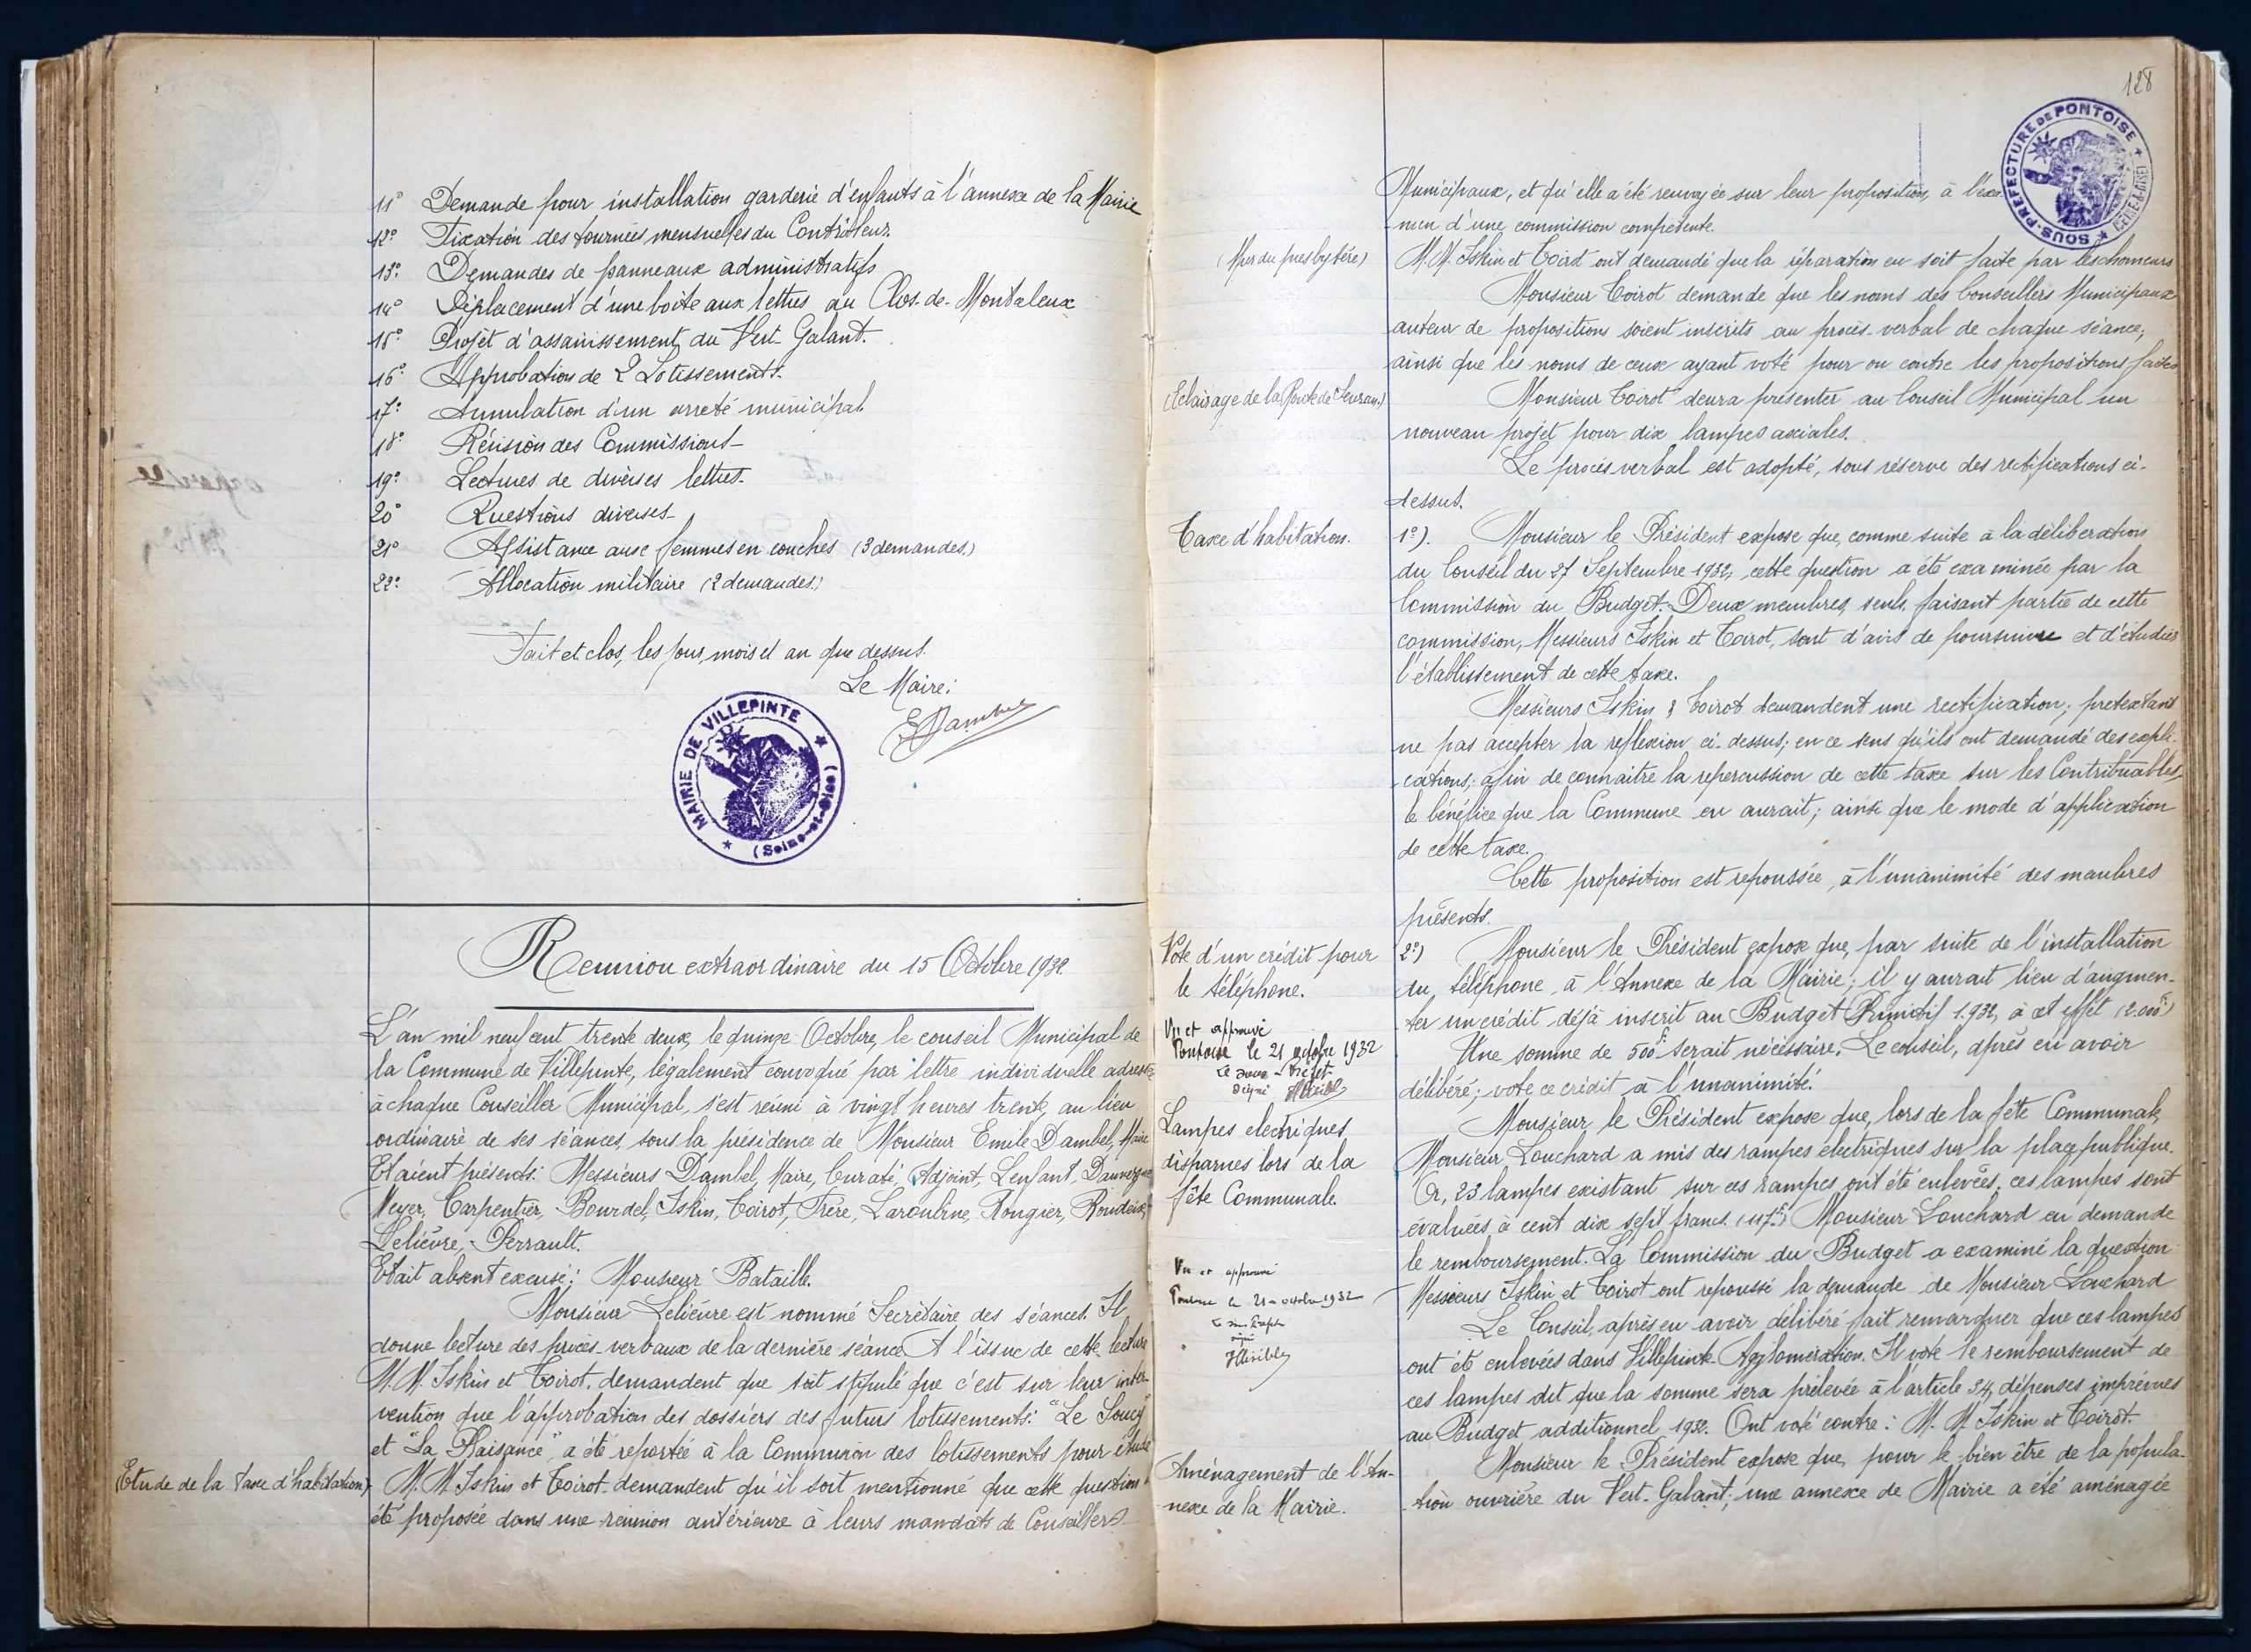 11° Demande pour installation garderie d'enfants à l'annexe de la Mairie
12° Fixation des tournées mensuelles du Contrôleur.
13° Demandes de panneaux administratifs
14° Déplacement d'une boite aux lettres au Clos-de-Montceleux
15° Projet d'assainissement du Vert-Galant.
16° Approbation de 2 Lotissements.
17° Annulation d'un arreté municipal.
18° Révision des Commissions-
19° Lectures de diverses lettres.
20° Questions diverses-
21° Assistance aux femmes en couches (3 demandes.)
22° Allocation militaire (2 demandes.)
Fait et clos, les jour, mois et an que dessus.
Le Maire:
MAIRIE DE VILLEPINTE
(Seine-et-Oise)
Reunion extraordinaire du 15 Octobre 1932.
L'an mil neuf cent trente deux, le quinze Octobre, le conseil Municipal de
la Commune de Villepinte, légalement convoqué par lettre individuelle adressée
à chaque Conseiller Municipal, s'est réuni à vingt heures trente, au lieu
ordinaire de ses séances, sous la présidence de Monsieur Emile Dambel, Maire
Etaient présents: Messieurs Dambel, Maire, Curaté, Adjoint, Lenfant, Dauvergne
Meyer, Carpentier, Bourdel, Iskin, Coirot, Frère, Laroubine, Rougier,
Lelièvre, Perrault.
Etait absent excusé: Monsieur Bataille.
Monsieur Lelièvre est nommé Secrétaire des séances. Il
donne lecture des procès-verbaux de la dernière séance. A l'issue de cette lecture
M.M. Iskin et Coirot, demandent que soit stipulé que c'est sur leur inter-
vention que l'approbation des dossiers des futurs lotissements: "Le Soucy"
et "La Plaisance", a été reportée à la Commission des lotissements pour étude
(Etude de la taxe d'habitation) M.M. Iskin et Coirot demandent qu'il soit mentionné que cette question a
été proposée dans une reunion antérieure à leurs mandats de Conseillers
128
SOUS-PREFECTURE DE PONTOISE
(SEINE-&-OISE)
Municipaux, et qu'elle a été renvoyée sur leur proposition, à l'exa-
men d'une commission compétente.
(Mur du presbytère) M.M. Iskin et Coirot ont demandé que la réparation en soit faite par les chomeurs
Monsieur Coirot demande que les noms des Conseillers Municipaux
auteur de propositions soient inscrits au procès-verbal de chaque séance;
ainsi que les noms de ceux ayant voté pour ou contre les propositions faites
(Eclairage de la Route de Sevran) Monsieur Coirot devra présenter au Conseil Municipal un
nouveau projet pour dix lampes axiales.
Le procès verbal est adopté, sous réserve des rectifications ci-
dessus.
Taxe d'habitation. 1°). Monsieur le Président expose que, comme suite à la délibération
du Conseil du 27 Septembre 1932, cette question a été examinée par la
Commission du Budget. Deux membres, seuls, faisant partie de cette
commission, Messieurs Iskin et Coirot, sont d'avis de poursuivre et d'étudier
l'établissement de cette taxe.
Messieurs Iskin & Coirot demandent une rectification; pretextant
ne pas accepter la reflexion ci-dessus; en ce sens qu'ils ont demandé des expli-
cations; afin de connaitre la repercussion de cette taxe sur les Contribuables,
le bénéfice que la Commune en aurait; ainsi que le mode d'application
de cette taxe.
Cette proposition est repoussée, à l'unanimité des membres
présents.
Vote d'un crédit pour
le téléphone.
2°) Monsieur le Président expose que, par suite de l'installation
du téléphone, à l'Annexe de la Mairie; il y aurait lieu d'augmen-
ter un crédit déjà inscrit au Budget Primitif 1.932, à cet effet (2.000fr)
Une somme de 500fr serait nécessaire. Le conseil, après en avoir
délibéré; vote ce crédit à l'unanimité.
Vu et approuvé
Pontoise le 21 octobre 1932
Le Sous-Préfet
signé Illisible
Lampes electriques
disparues lors de la
fête Communale.
Monsieur le Président expose que, lors de la fête Communale,
Monsieur Louchard a mis des rampes électriques sur la place publique.
Or, 23 lampes existant sur ces rampes ont été enlevées. ces lampes sont
évaluées à cent dix sept francs. (117fr) Monsieur Louchard en demande
le remboursement. La Commission du Budget a examiné la question
Messieurs Iskin et Coirot ont repoussé la demande de Monsieur Louchard
Le Conseil, après en avoir délibéré fait remarquer que ces lampes
ont été enlevées dans Villepinte-Agglomération. Il vote le remboursement de
ces lampes dit que la somme sera prélevée à l'article 34, dépenses imprévues
au Budget additionnel 1932. Ont voté contre: M.M. Iskin et Coirot.
Vu et approuvé
Pontoise le 21-octobre 1932
Le Sous-Préfet
signé
Illisible
Aménagement de l'An-
nexe de la Mairie.
Monsieur le Président expose que, pour le bien être de la popula-
tion ouvrière du Vert-Galant; une annexe de Mairie a été aménagée